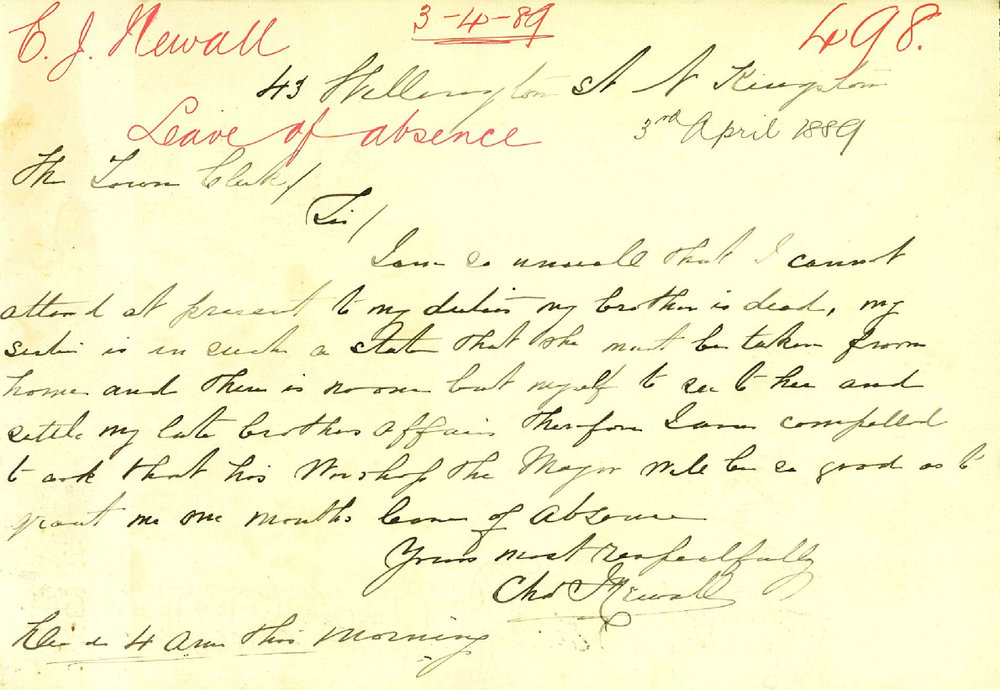 C. J. Newall
3-4-89
498.
43 Wellington St N Kingston
Leave of absence
3rd April 1889
The Town Clerk/
Sir/
I am so unwell that I cannot
attend at present to my duties my brother is dead, my
sister is in such a state that she must be taken from
home and there is no one but myself to see to her and
settle my late brothers affairs therefore I am compelled
to ask that his Worship the Mayor will be so good as to
grant me one months leave of absence
Yours most respectfully
Chas J Newall
4 am this morning